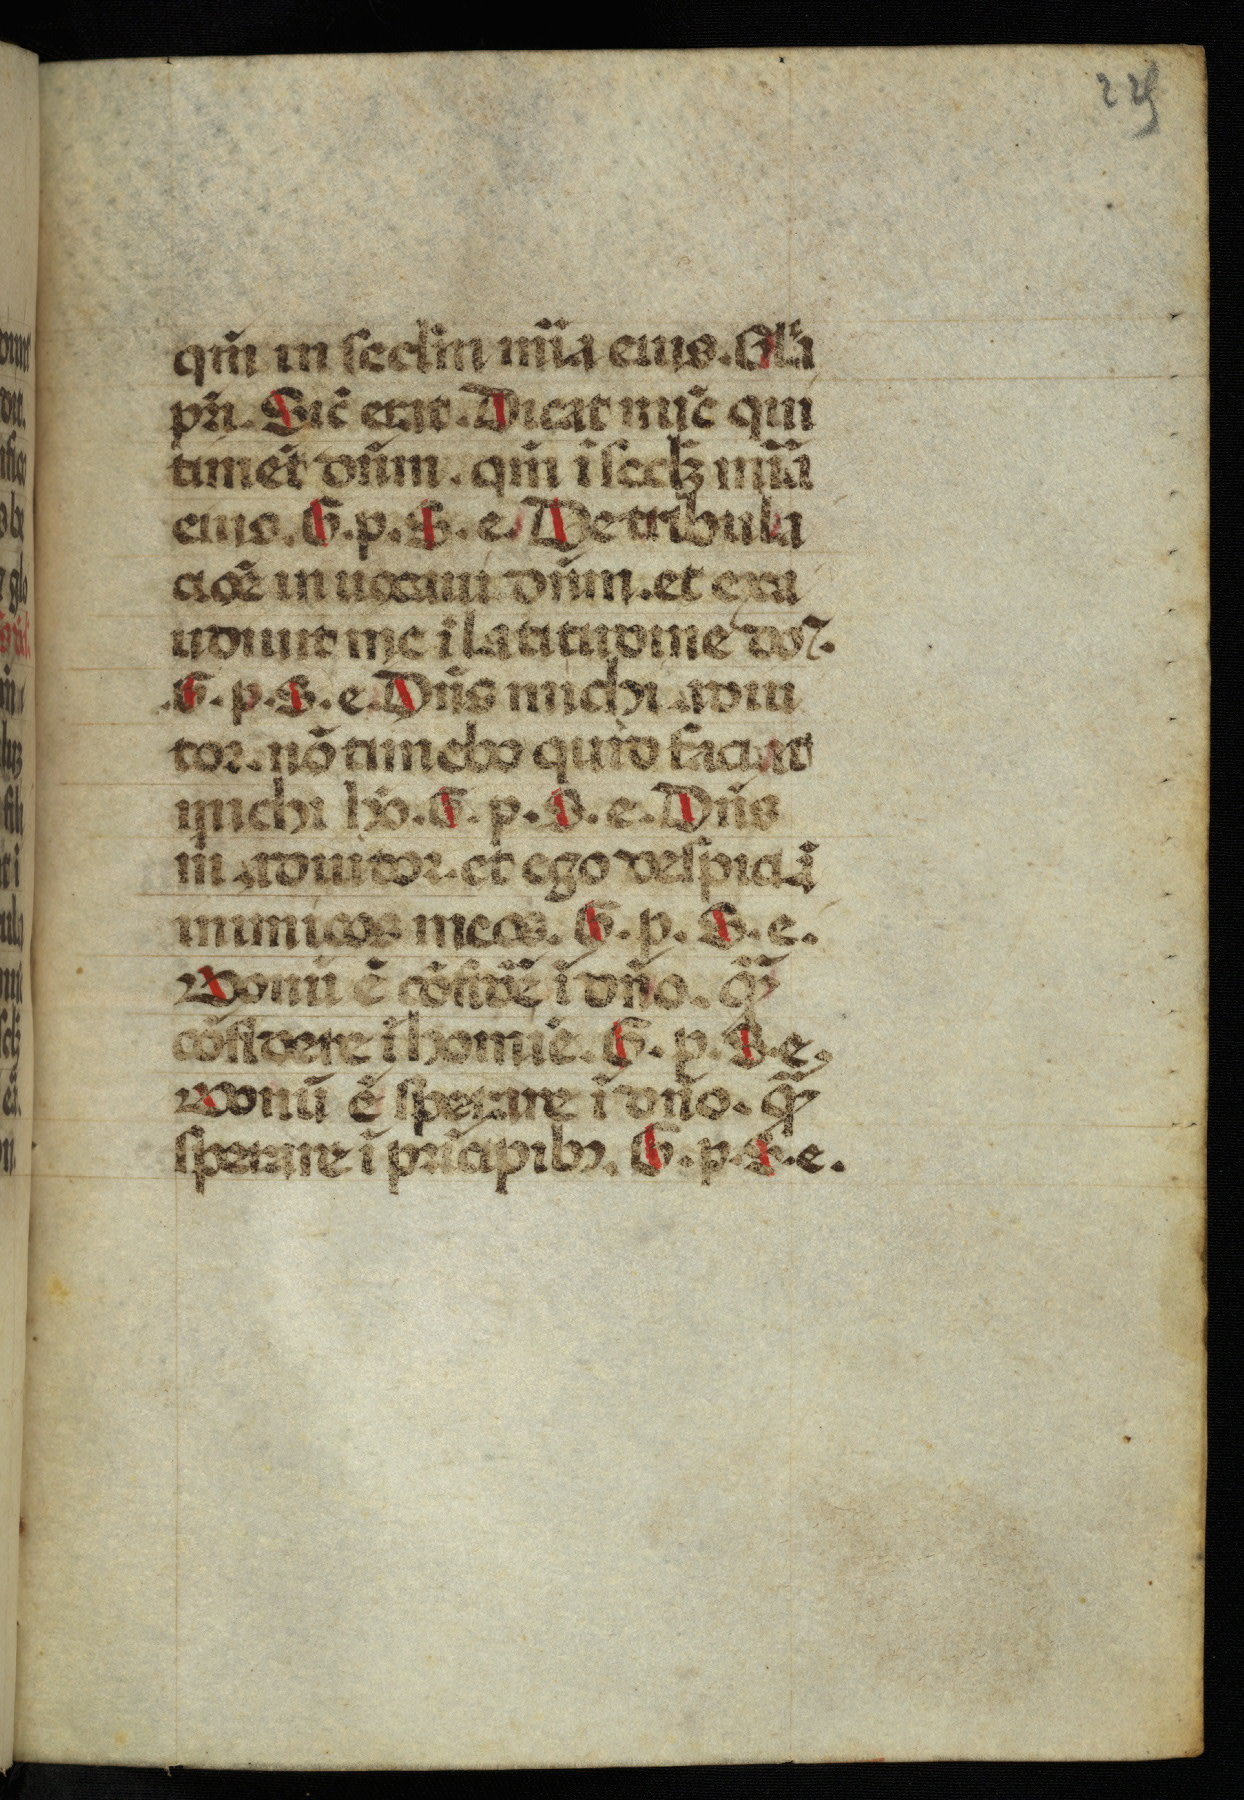 225
qm̄ in secl̄m mīa eius. Gl̄a
pr̄i. Sic̄ erat. Dicat nūc qui
timēt dn̄m. qm̄ ī seclꝫ mīa
eius. G. p. S. e. De tribula
cōe inuocaui dn̄m. et exa
udiuit me ī latitudine dos.
G. p. S. e. Dn̄s michi adiu
tor. nō timebo quid faciat
michi hō. G. p. S. e. Dn̄s
m̄ adiutor. et ego despiciā
inimicos meos. G. p. S. e.
Bonū ē cōfidēe ī dn̄o. qꝫ̄
cōfidere ī homīe. G. p. S. e.
Bonū ē sperare ī dn̄o. qꝫ̄
sperare ī prīcipibꝫ. G. p. S. e.